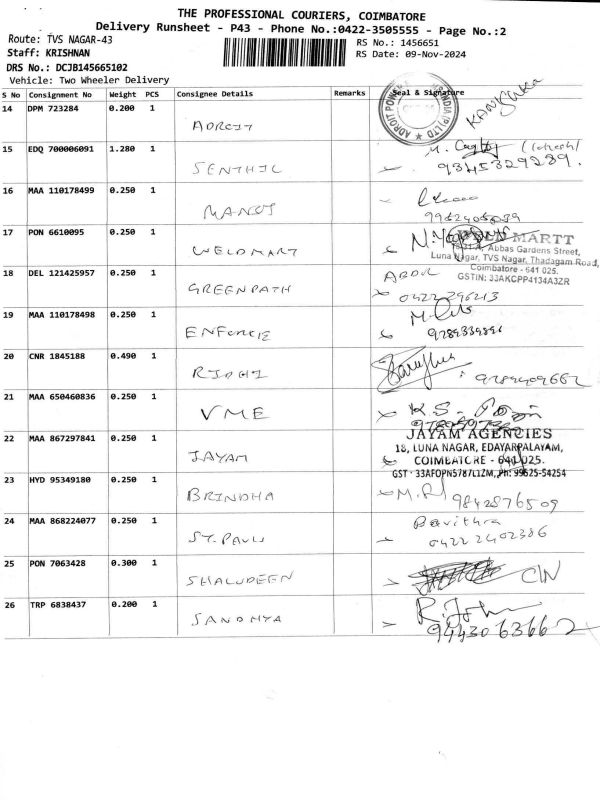 THE PROFESSIONAL COURIERS, COIMBATORE
Delivery Runsheet - P43 - Phone No.:0422-3505555 - Page No.:2
Route: TVS NAGAR-43
RS No.: 1456651
Staff: KRISHNAN
RS Date: 09-Nov-2024
DRS No.: DCJB145665102
Vehicle: Two Wheeler Delivery
S No Consignment No Weight PCS Consignee Details Remarks Seal & Signature
14 DPM 723284 0.200 1 ADROIT KANISHKA
15 EDQ 700006091 1.280 1 SENTHIL
9345329289.
16 MAA 110178499 0.250 1 MANOJ
17 PON 6610095 0.250 1 WELDMART
MARTT
Abbas Gardens Street,
Luna Nagar, TVS Nagar, Thadagam Road,
Coimbatore - 641 025.
GSTIN: 33AKCPP4134A3ZR
18 DEL 121425957 0.250 1 GREENPATH ABDUL
0422 396213
19 MAA 110178498 0.250 1 ENFORCIE
20 CNR 1845188 0.490 1 RIDHI
21 MAA 650460836 0.250 1 VME K.S-
22 MAA 867297841 0.250 1 JAYAM
JAYAM AGENCIES
18, LUNA NAGAR, EDAYARPALAYAM,
COIMBATORE - 641 025.
GST : 33AFOPN5787L1ZM, Ph: 99625-54254
23 HYD 95349180 0.250 1 BRINDHA M.R
9842876509
24 MAA 868224077 0.250 1 ST.PAULS Pavithra
0422 2402386
25 PON 7063428 0.300 1 SHALUDEEN
26 TRP 6838437 0.200 1 SANDHYA R.John
9443063662